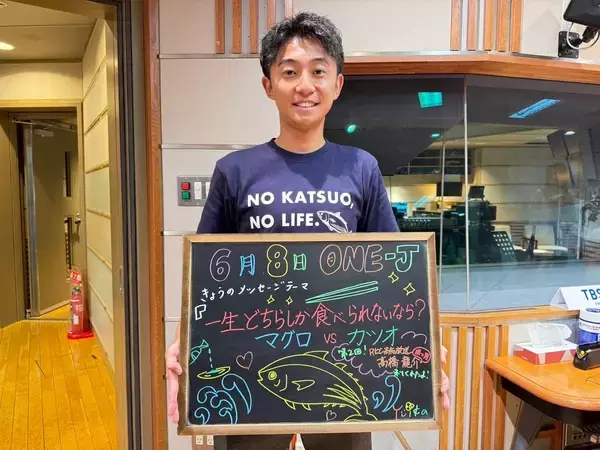 NO KATSUO,
NO LIFE.
6月8日 ONE-J
きょうのメッセージテーマ
『一生どちらしか食べられないなら?
マグロ VS カツオ
第2回!
RKC高知放送
高橋龍介
来てくれたよ!
Yuika
TBS